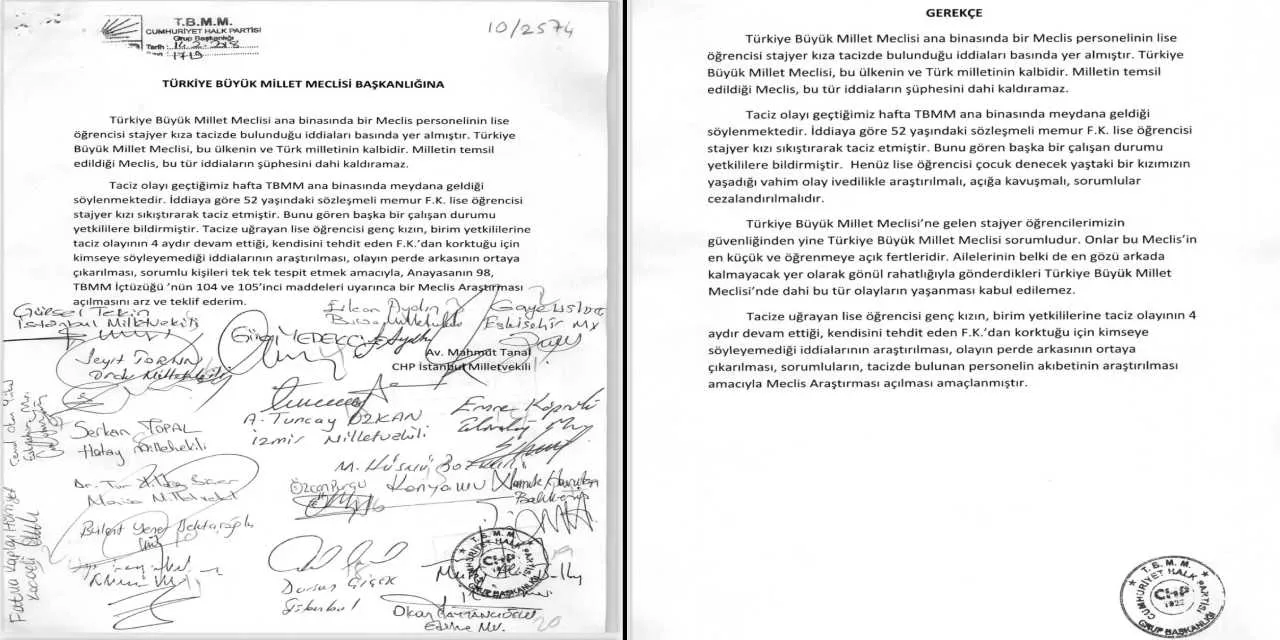 T.B.M.M.
CUMHURİYET HALK PARTİSİ
Grup Başkanlığı
Tarih :
1719
10/2574
TÜRKİYE BÜYÜK MİLLET MECLİSİ BAŞKANLIĞINA
Türkiye Büyük Millet Meclisi ana binasında bir Meclis personelinin lise
öğrencisi stajyer kıza tacizde bulunduğu iddiaları basında yer almıştır. Türkiye
Büyük Millet Meclisi, bu ülkenin ve Türk milletinin kalbidir. Milletin temsil
edildiği Meclis, bu tür iddiaların şüphesini dahi kaldıramaz.
Taciz olayı geçtiğimiz hafta TBMM ana binasında meydana geldiği
söylenmektedir. İddiaya göre 52 yaşındaki sözleşmeli memur F.K. lise öğrencisi
stajyer kızı sıkıştırarak taciz etmiştir. Bunu gören başka bir çalışan durumu
yetkililere bildirmiştir. Tacize uğrayan lise öğrencisi genç kızın, birim yetkililerine
taciz olayının 4 aydır devam ettiği, kendisini tehdit eden F.K.'dan korktuğu için
kimseye söyleyemediği iddialarının araştırılması, olayın perde arkasının ortaya
çıkarılması, sorumlu kişileri tek tek tespit etmek amacıyla, Anayasanın 98,
TBMM İçtüzüğü 'nün 104 ve 105'inci maddeleri uyarınca bir Meclis Araştırması
açılmasını arz ve teklif ederim.
Gürsel Tekin
İstanbul Milletvekili
Erkan Aydın
Eskişehir
Seyit Torun
Ordu Milletvekili
Av. Mahmut Tanal
CHP İstanbul Milletvekili
Serkan TOPAL
Hatay Milletvekili
A. Tuncay ÖZKAN
İzmir Milletvekili
Emre Köprülü
M. Hüsnü
Konya
Balıkesir
Bülent Yener Bektaşoğlu
Fatma Kaplan Hürriyet
Kocaeli
Dursun Çiçek
İstanbul
Okan
Edirne Mv.
T.B.M.M.
CUMHURİYET HALK PARTİSİ
CHP
GRUP BAŞKANLIĞI
20
GEREKÇE
Türkiye Büyük Millet Meclisi ana binasında bir Meclis personelinin lise
öğrencisi stajyer kıza tacizde bulunduğu iddiaları basında yer almıştır. Türkiye
Büyük Millet Meclisi, bu ülkenin ve Türk milletinin kalbidir. Milletin temsil
edildiği Meclis, bu tür iddiaların şüphesini dahi kaldıramaz.
Taciz olayı geçtiğimiz hafta TBMM ana binasında meydana geldiği
söylenmektedir. İddiaya göre 52 yaşındaki sözleşmeli memur F.K. lise öğrencisi
stajyer kızı sıkıştırarak taciz etmiştir. Bunu gören başka bir çalışan durumu
yetkililere bildirmiştir. Henüz lise öğrencisi çocuk denecek yaştaki bir kızımızın
yaşadığı vahim olay ivedilikle araştırılmalı, açığa kavuşmalı, sorumlular
cezalandırılmalıdır.
Türkiye Büyük Millet Meclisi'ne gelen stajyer öğrencilerimizin
güvenliğinden yine Türkiye Büyük Millet Meclisi sorumludur. Onlar bu Meclis'in
en küçük ve öğrenmeye açık fertleridir. Ailelerinin belki de en gözü arkada
kalmayacak yer olarak gönül rahatlığıyla gönderdikleri Türkiye Büyük Millet
Meclisi'nde dahi bu tür olayların yaşanması kabul edilemez.
Tacize uğrayan lise öğrencisi genç kızın, birim yetkililerine taciz olayının 4
aydır devam ettiği, kendisini tehdit eden F.K.'dan korktuğu için kimseye
söyleyemediği iddialarının araştırılması, olayın perde arkasının ortaya
çıkarılması, sorumluların, tacizde bulunan personelin akıbetinin araştırılması
amacıyla Meclis Araştırması açılması amaçlanmıştır.
T.B.M.M.
CUMHURİYET HALK PARTİSİ
CHP
1923
GRUP BAŞKANLIĞI